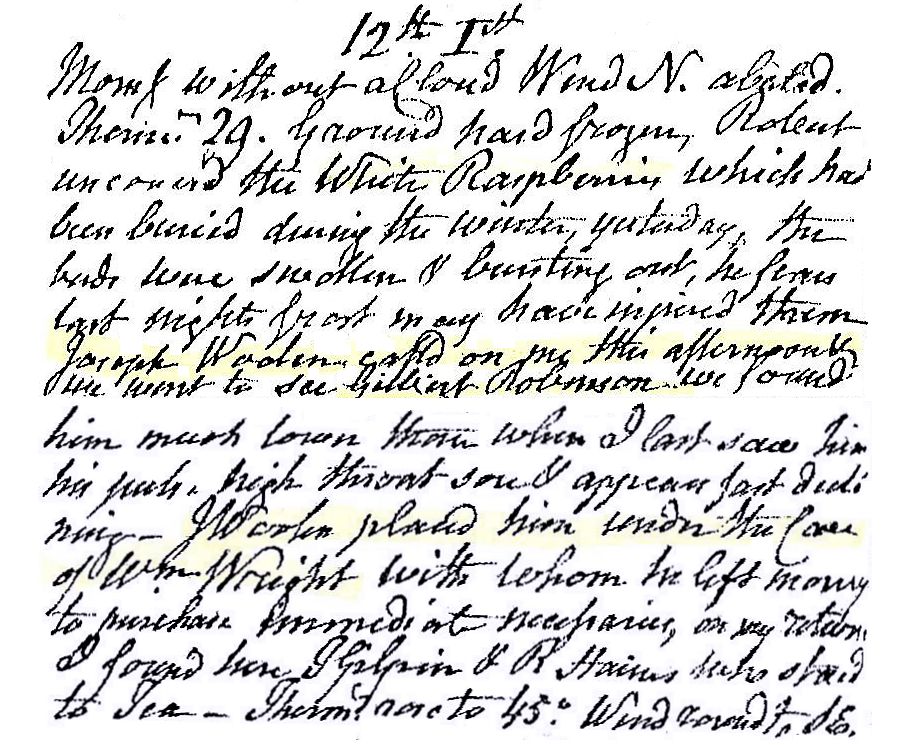 12th Ist
Morng without a Cloud Wind N. abated.
Therm. 29. Ground hard frozen, Robert
uncover'd the White Raspberries, which had
been buried during the winter, yesterday, the
buds were swollen & bursting out, he fears
last nights frost may have injured them
Joseph Woolen call'd on me this afternoon
we went to see Gilbert Robinson we found
him much lower than when I last saw him
his pulse high throat sore & appears fast decli
ning - J Woolen placed him under the Care
of Wm Wright with whom he left money
to purchase immediate necessaries, on my return
I found here J Gilpin & R Haines who staid
to Tea - Therm. rose to 45° Wind round to SE.